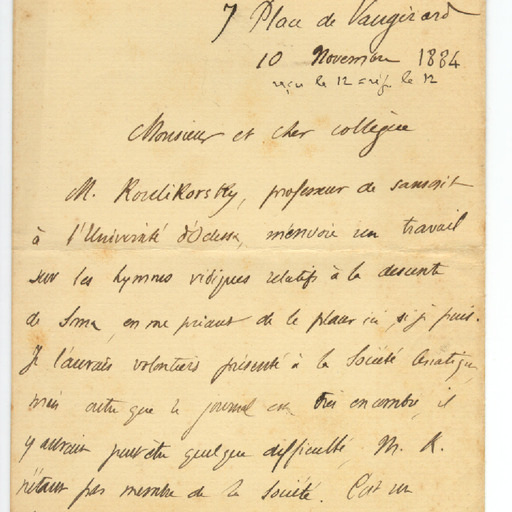 7 Place de Vaugirard
10 Novembre 1884
reçu le 12 = rép. le 12
Monsieur et cher collègue
M. , professeur de sanscrit
à l'Université d'Odessa, m'envoie un travail
sur les hymnes védiques relatifs à la descente
de Soma, en me priant de le placer ici, si je puis.
Je l'aurais volontiers présenté à la Société Asiatique,
mais outre que le journal est très encombré, il
y aurait peut être quelque difficulté, M. K.
n'étant pas membre de la Société. C'est un